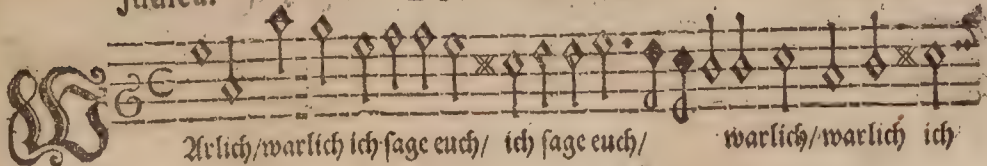 Judica.
WArlich/warlich ich sage euch/ ich sage euch/ warlich/warlich ich